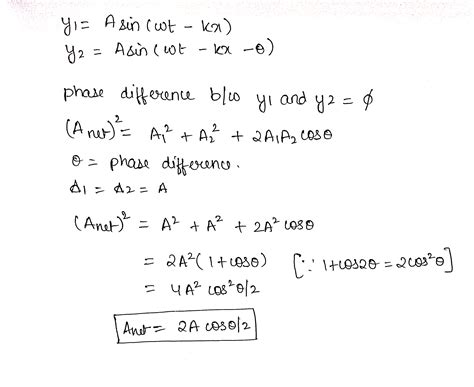 y1 = A sin (ωt - kx)
y2 = A sin (ωt - kx - θ)
phase difference b/w y1 and y2 = ϕ
(A net)² = A1² + A2² + 2A1A2 cosθ
θ = phase difference.
A1 = A2 = A
(Anet)² = A² + A² + 2A² cosθ
= 2A² (1 + cosθ) [∵ 1+cos2θ = 2cos²θ]
= 4A² cos²θ/2
Anet = 2A cosθ/2